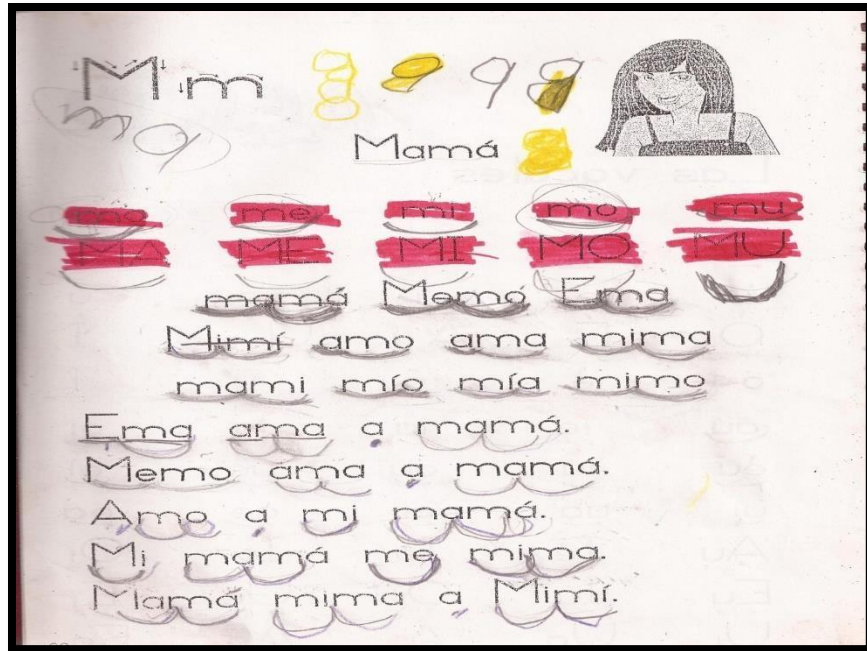 M m
ma
Mamá
ma me mi mo mu
MA ME MI MO MU
mamá Memó Ema
Mimí amo ama mima
mami mío mía mimo
Ema ama a mamá.
Memo ama a mamá.
Amo a mi mamá.
Mi mamá me mima.
Mamá mima a Mimí.